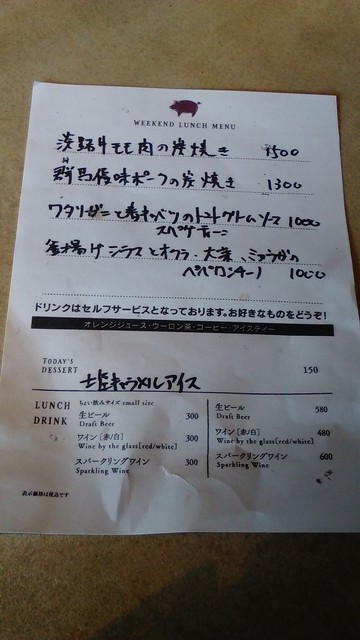 WEEKEND LUNCH MENU
淡路牛モモ肉の炭焼き 1500
群馬優味ポークの炭焼き 1300
ワタリガニと春キャベツのトマトクリームソース 1000
スパゲティーニ
釜揚げシラスとオクラ、大葉、ミョウガの
ペペロンチーノ 1000
ドリンクはセルフサービスとなっております。お好きなものをどうぞ!
オレンジジュース・ウーロン茶・コーヒー・アイスティー
TODAY'S
DESSERT 150
塩キャラメルアイス
LUNCH
DRINK
ちょい飲みサイズ small size
生ビール 300
Draft Beer
ワイン [赤/白] 300
Wine by the glass[red/white]
スパークリングワイン 300
Sparkling Wine
生ビール 580
Draft Beer
ワイン [赤/白] 480
Wine by the glass[red/white]
スパークリングワイン 600
Sparkling Wine
表示価格は税込です